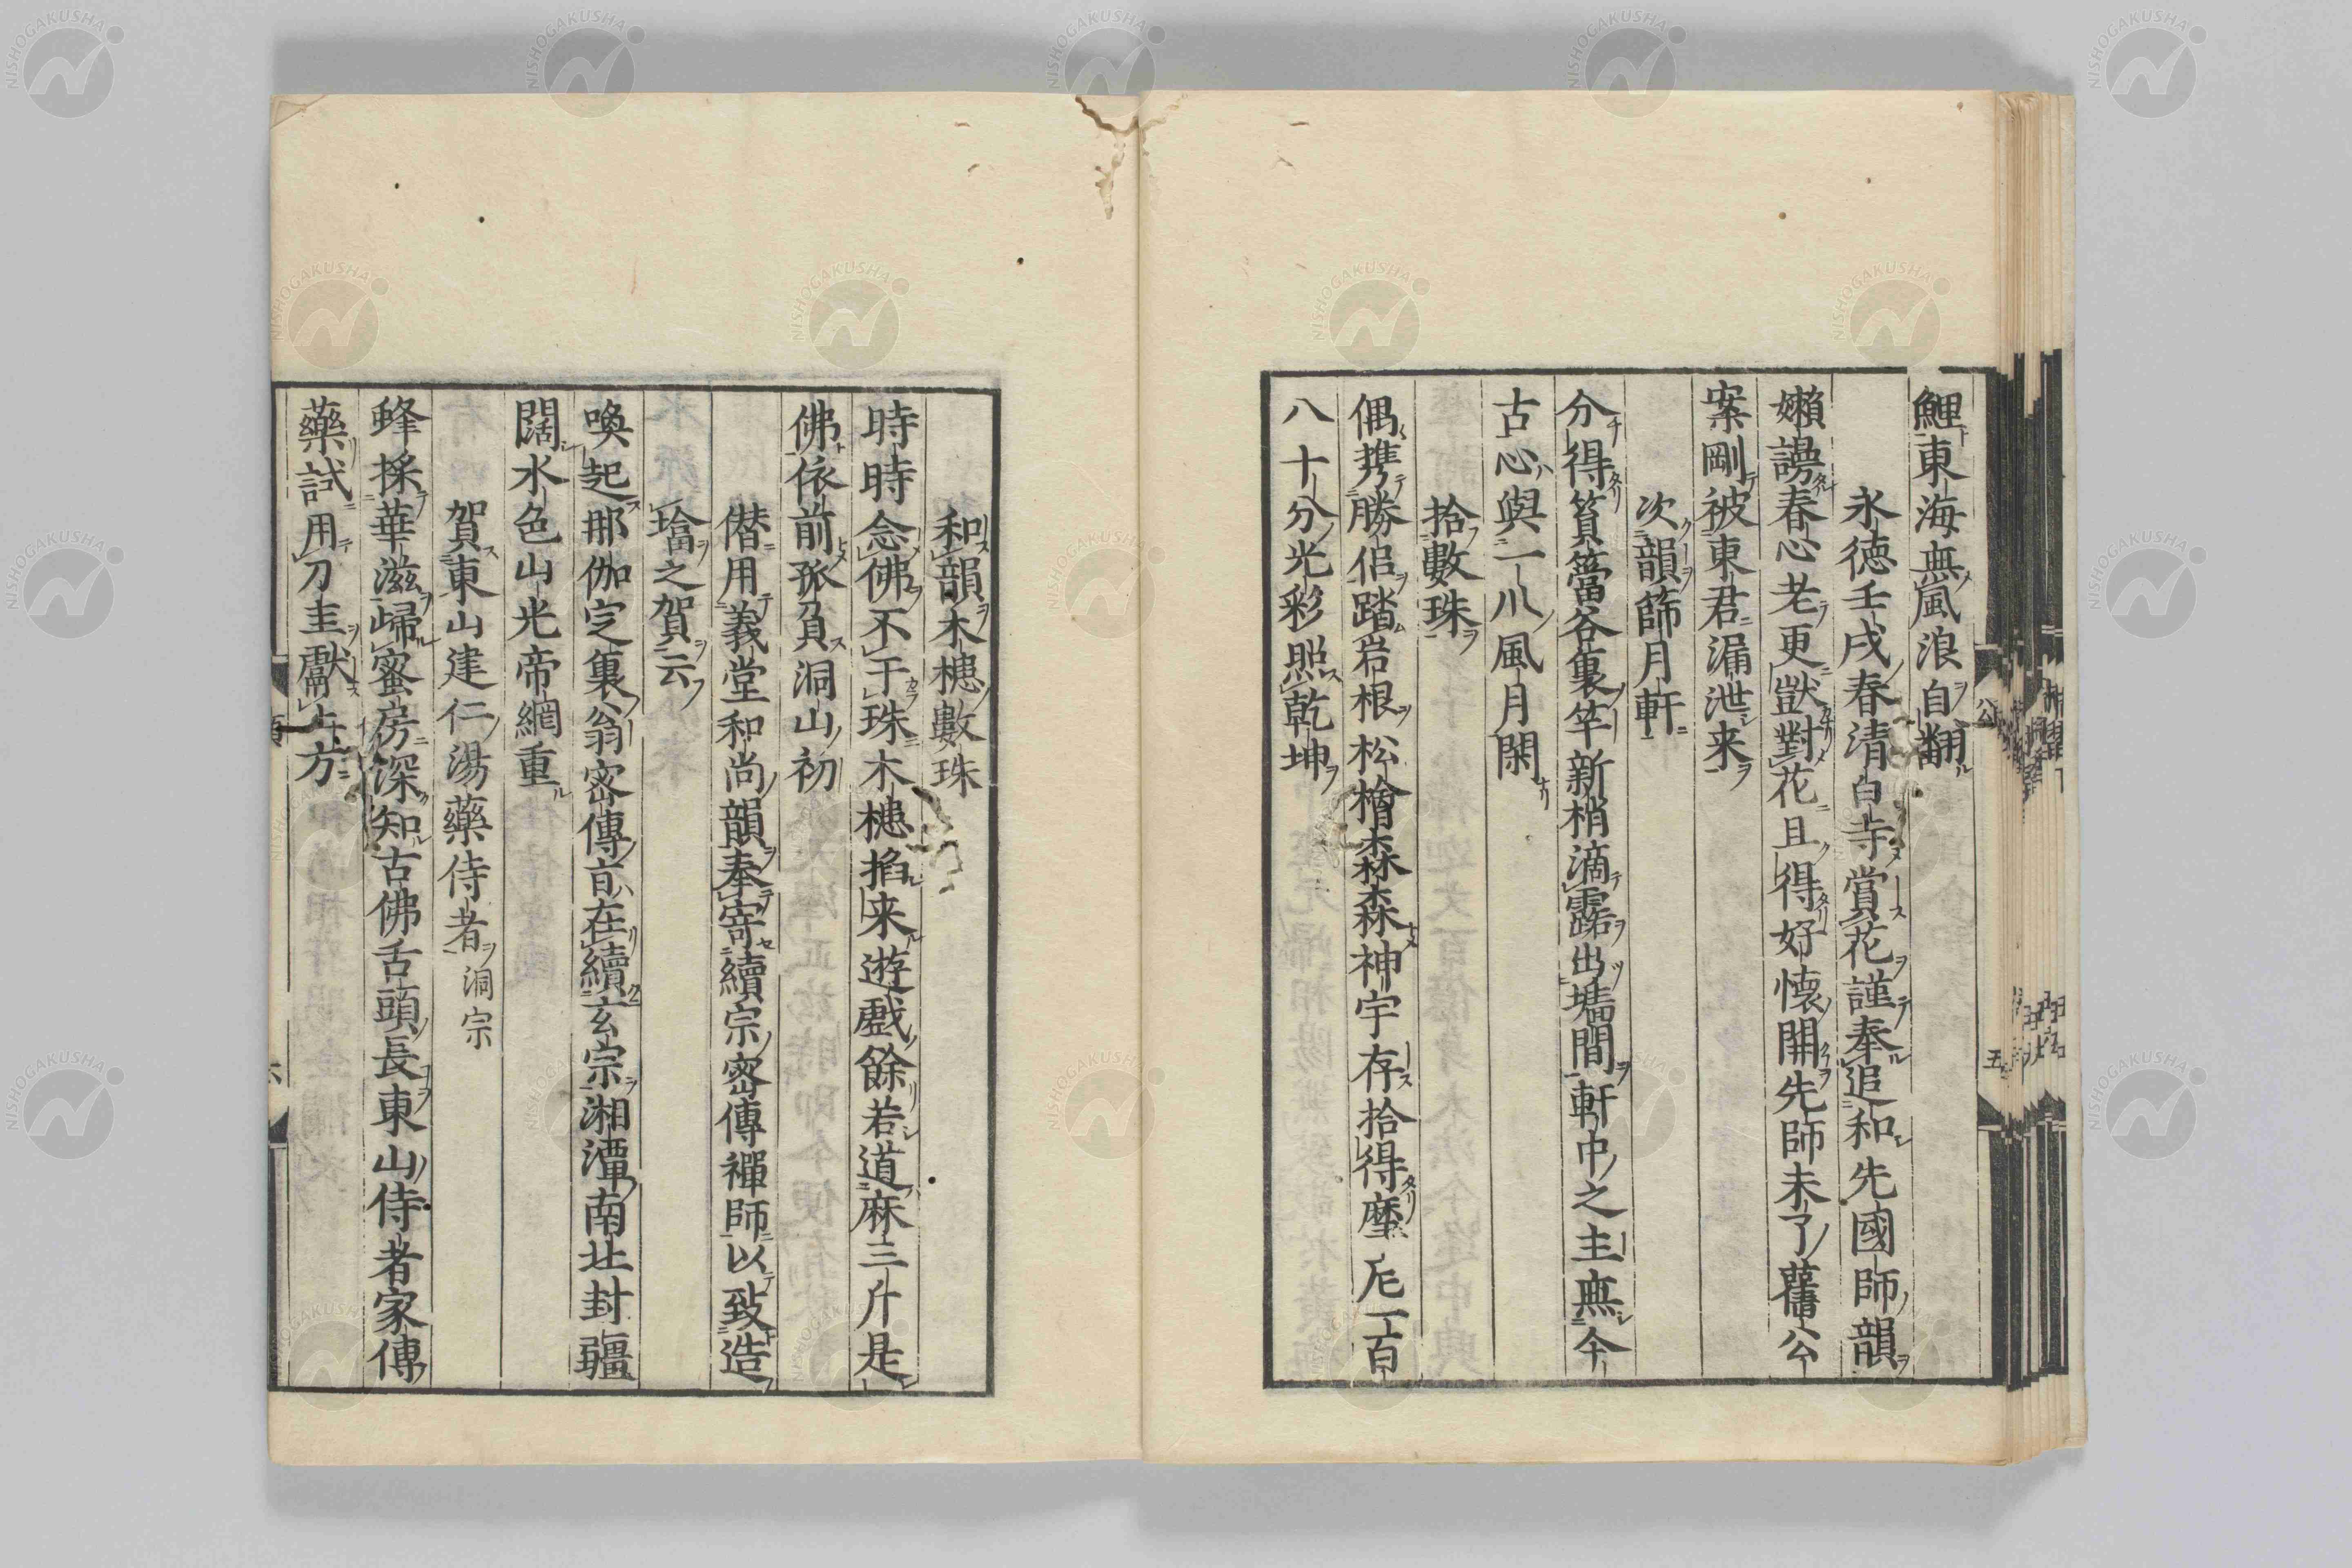 鯉東海無風浪自翻
永徳壬戌春清白寺賞花謹奉追和先國師韻
嬾謾春心老更獃對花且得好懷開先師未了舊公
案剛被東君漏泄来
次韻篩月軒
分得篔簹谷裏竿新梢滴露出墻間軒中之主無今
古心與一川風月閑
拾數珠
偶携勝侶踏岩根松檜森森神宇存拾得摩尼一百
八十分光彩照乾坤
和韻木槵數珠
時時念佛不干珠木槵掐来遊戲餘若道麻三斤是
佛依前孤負洞山初
僣用義堂和尚韻奉寄續宗密傳禪師以致造
墖之賀云
喚起那伽定裏翁密傳盲在續玄宗湘潭南北封疆
闊水色山光帝網重
賀東山建仁湯藥侍者洞宗
蜂採華滋歸蜜房深知古佛舌頭長東山侍者家傳
藥試用刀圭獻上方